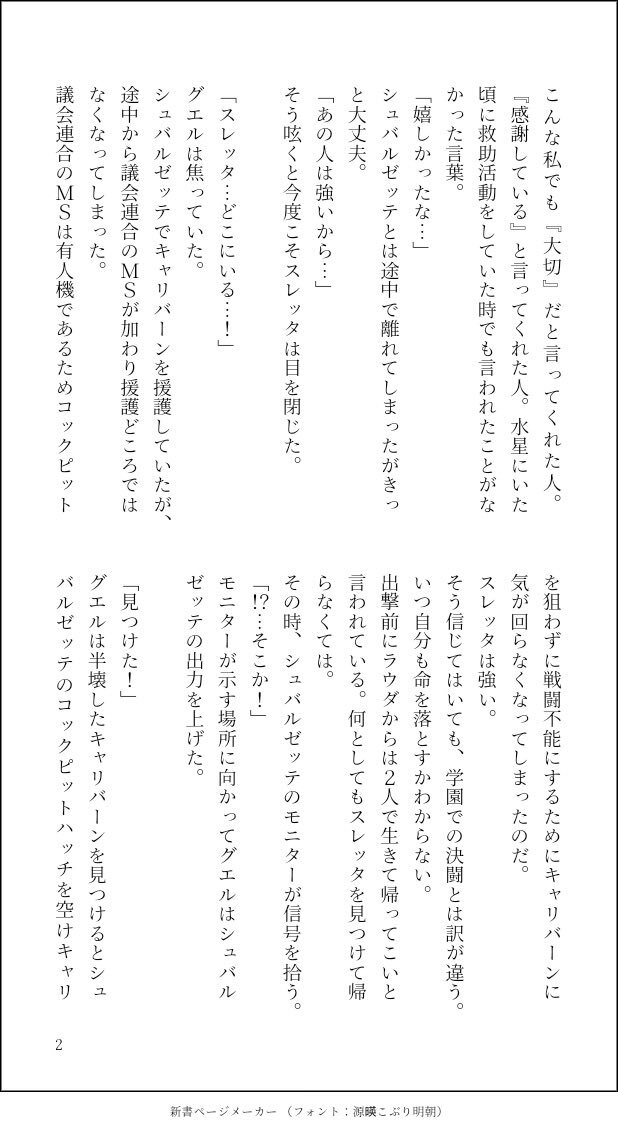 こんな私でも『大切』だと言ってくれた人。
『感謝している』と言ってくれた人。水星にいた
頃に救助活動をしていた時でも言われたことがな
かった言葉。
「嬉しかったな…」
シュバルゼッテとは途中で離れてしまったがきっ
と大丈夫。
「あの人は強いから…」
そう呟くと今度こそスレッタは目を閉じた。
「スレッタ…どこにいる…！」
グエルは焦っていた。
シュバルゼッテでキャリバーンを援護していたが、
途中から議会連合のＭＳが加わり援護どころでは
なくなってしまった。
議会連合のＭＳは有人機であるためコックピット
を狙わずに戦闘不能にするためにキャリバーンに
気が回らなくなってしまったのだ。
スレッタは強い。
そう信じてはいても、学園での決闘とは訳が違う。
いつ自分も命を落とすかわからない。
出撃前にラウダからは２人で生きて帰ってこいと
言われている。何としてもスレッタを見つけて帰
らなくては。
その時、シュバルゼッテのモニターが信号を拾う。
「!?…そこか！」
モニターが示す場所に向かってグエルはシュバル
ゼッテの出力を上げた。
「見つけた！」
グエルは半壊したキャリバーンを見つけるとシュ
バルゼッテのコックピットハッチを空けキャリ
2
新書ページメーカー（フォント：源暎こぶり明朝）